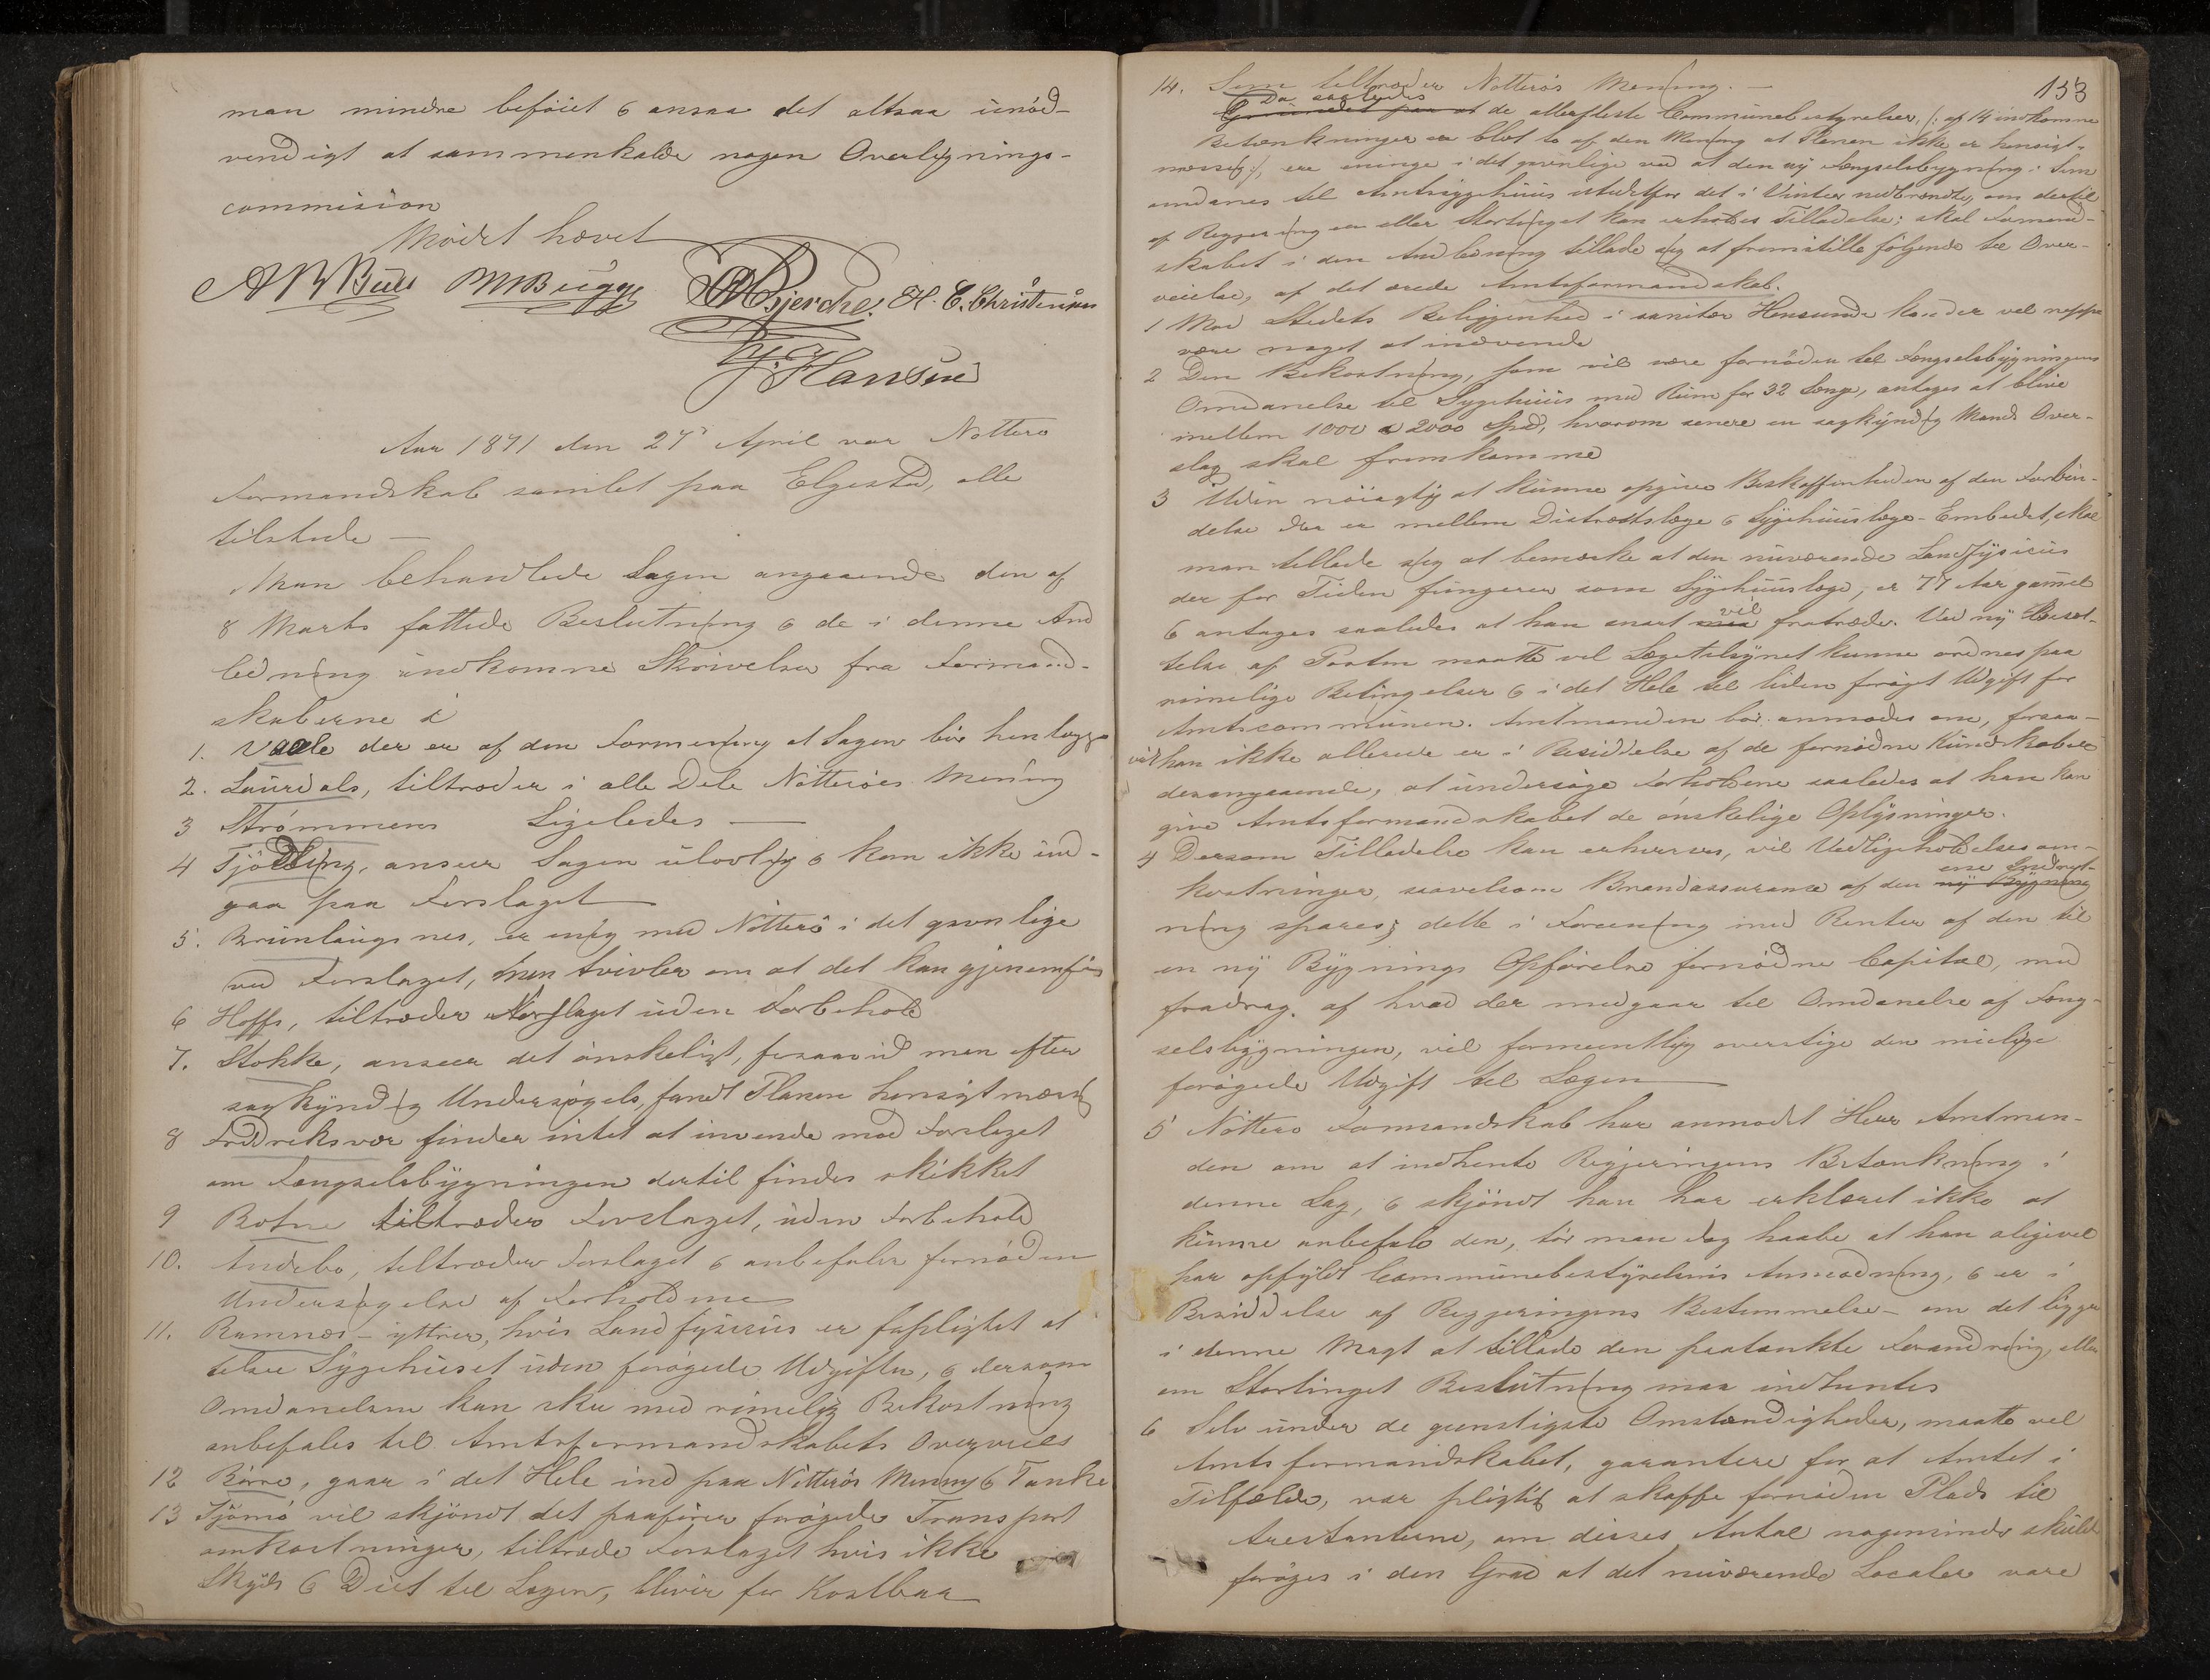 man mindre beføiet & ansaa det altsaa unød-
vendigt at sammenkalde nogen Overlignings-
commision
Mødet hævet
A B Bull M Bugge O Bjercke. H. C. Christensen
H. Hansen
Aar 1871 den 27d April var Nøtterø
Formandskab samlet paa Elgestad, alle
tilstede —
Man behandlede Sagen angaaende den af
8 Marts fattede Beslutning & de i denne And
ledning indkomne Skrivelser fra Formand-
skaberne i
1. Vaale der er af den Formening at Sagen bør henlægges
2. Laurdals, tiltræder i alle Dele Nøtterøes Mening
3 Strømmens Ligeledes —
4 Tjødling, anseer Sagen ulovlig & kan ikke ind-
gaa paa Forslaget
5. Brunlaugsnes, er enig med Nøtterø i det gavnlige
ved Forslaget, men tvivler om at det kan gjenemføres
6 Hoffs, tiltræder Forslaget uden Forbehold
7. Stokke, anseer det ønskeligt, forsaavid man efter
sagkyndig Undersøgels, fandt Planen hensigtmæssig
8 Fredriksvær finder intet at invende mod Forslaget
om Fængselsbygningen dertil findes skikket
9 Botne tiltræder Forslaget, uden Forbehold
10. Andebo, tiltræder Forslaget & anbefaler fornøden
Undersøgelse af Forholdene
11. Ramnæs – yttrer, hvis Landfysicus er forpligtet at
tilsee Sygehuset uden forøgede Udgifter, & dersom
Omdanelsen kan skee med rimelig Bekostning
anbefales til Amtsformandskabets Overveiels
12 Borre, gaar i det Hele ind paa Nøtterøs Mening & Tanke
13 Tjømø vil skjøndt det paafører forøgede Transport
omkostninger, tiltræde Forslaget hvis ikke
Skyds & Diet til Lægen, bliver for Kostbaar
153
14. Sem tiltræder Nøtterøs Mening. —
Da saaledes
Grundet paa at de allerfleste Communebestyrelser, (: af 14 indkomne
Betænkninger er blot to af den Mening at Planen ikke er hensigt-
mæssig:), ere eninge i det gavnlige ved at den ny Fængselsbygning i Sem
omdanes til Amtssygehuus istedetfor det i Vinter nedbrændte, om dertil
af Regjeringen eller Stortinget kan erholdes Tilladelse; skal Formand-
skabet i den Andledning tillade sig at fremstille følgende til Over-
veielse, af det ærede Amtsformandskab.
1 Mod Stedets Beliggenhed i sanitær Henseende kan der vel neppe
være noget at indvende
2 Den Bekostning, som vil være fornøden til Fængselsbygningens
Omdanelse til Sygehuus med Rum for 32 Senge, antages at blive
mellem 1000 a 2000 Spd, hvorom senere en sagkyndig Mands Over-
slag skal fremkomme
3 Uden nøiagtig at kunne opgive Beskaffenheden af den Forbin-
delse der er mellem Distrætslæge & Sygehuuslæge-Embedet, skal
man tillade sig at bemærke at den nuværende Landfysicus
der for Tiden fungerer som Sygehuuslæge, er 77 Aar gammel
vil
& antages saaledes at han snart maa fratræde. Ved ny Besæt-
telse af Posten maatte vel Lægetilsynet kunne ordnes paa
rimelige Betingelser & i det Hele til liden forøget Udgift for
Amtscommunen. Amtmanden bør anmodes om, forsaa-
vidt han ikke allerede er i Besiddelse af de fornødne Kundskaber
desangaaende, at undersøge Forholdene saaledes at han kan
give Amtsformandskabet de ønskelige Oplysninger.
4 Dersom Tilladelse kan erhverves, vil Vedligeholdelsesom-
ene
kostninger, saavelsom Brandassurance af den ny Bygning
ning spares; dette i Forening med Renter af den til
en ny Bygnings Opførelse fornødne Capital, med
fradrag af hvad der medgaar til Omdanelse af Fæng-
selsbygningen, vil formentlig overstige den mulige
forøgede Udgift til Lægen
5 Nøtterø Formandskab har anmodet Herr Amtman-
den om at indhente Regjeringens Betænkning i
denne Sag, & skjøndt han har erklæret ikke at
kunne anbefale den, tør man dog haabe at han aligevel
har opfyldt Communebestyrelsens Anmodning, & er i
Besiddelse af Regjeringens Bestemmelse – om det ligger
i denne Magt at tillade den paatænkte Forandring, eller
om Stortinget Beslutning maa indhentes
6 Selv under de gunstigste Omstændigheder, maatte vel
Amtsformandskabet, garantere for at Amtet i
Tilfælde, var pligtig at skaffe fornøden Plads til
Arestanterne, om disses Antal nogensinde skulde
forøges i den Grad at det nuværende Locale vare